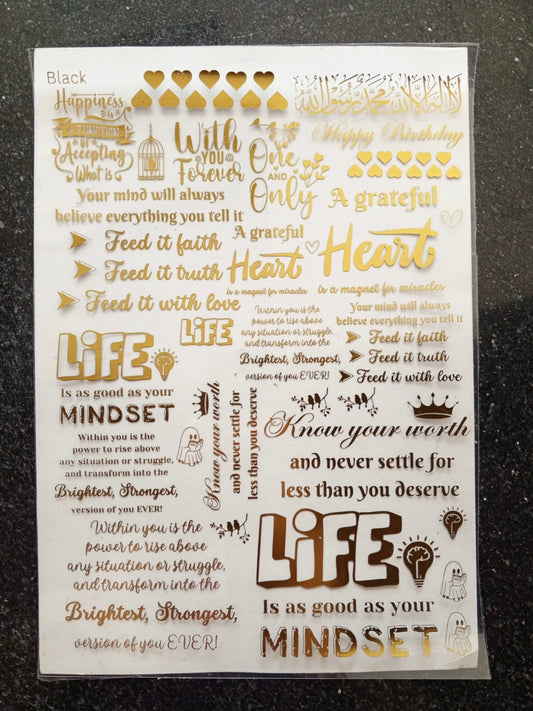 Black
Happiness
is
A FUNCTION
OF
Accepting
What is
With
YOU
Forever
One
AND
Only
لا اله الا الله محمد رسول الله
Happy Birthday
Your mind will always
believe everything you tell it
Feed it faith
Feed it truth
Feed it with love
A grateful
Heart
is a magnet for miracles
A grateful
Heart
is a magnet for miracles
LiFE
Is as good as your
MINDSET
LiFE
Within you is the
power to rise above
any situation or struggle,
and transform into the
Brightest, Strongest,
version of you EVER!
Your mind will always
believe everything you tell it
Feed it faith
Feed it truth
Feed it with love
Within you is the
power to rise above
any situation or struggle,
and transform into the
Brightest, Strongest,
version of you EVER!
Know your worth
and never settle for
less than you deserve
Know your worth
and never settle for
less than you deserve
Within you is the
power to rise above
any situation or struggle,
and transform into the
Brightest, Strongest,
version of you EVER!
LiFE
Is as good as your
MINDSET